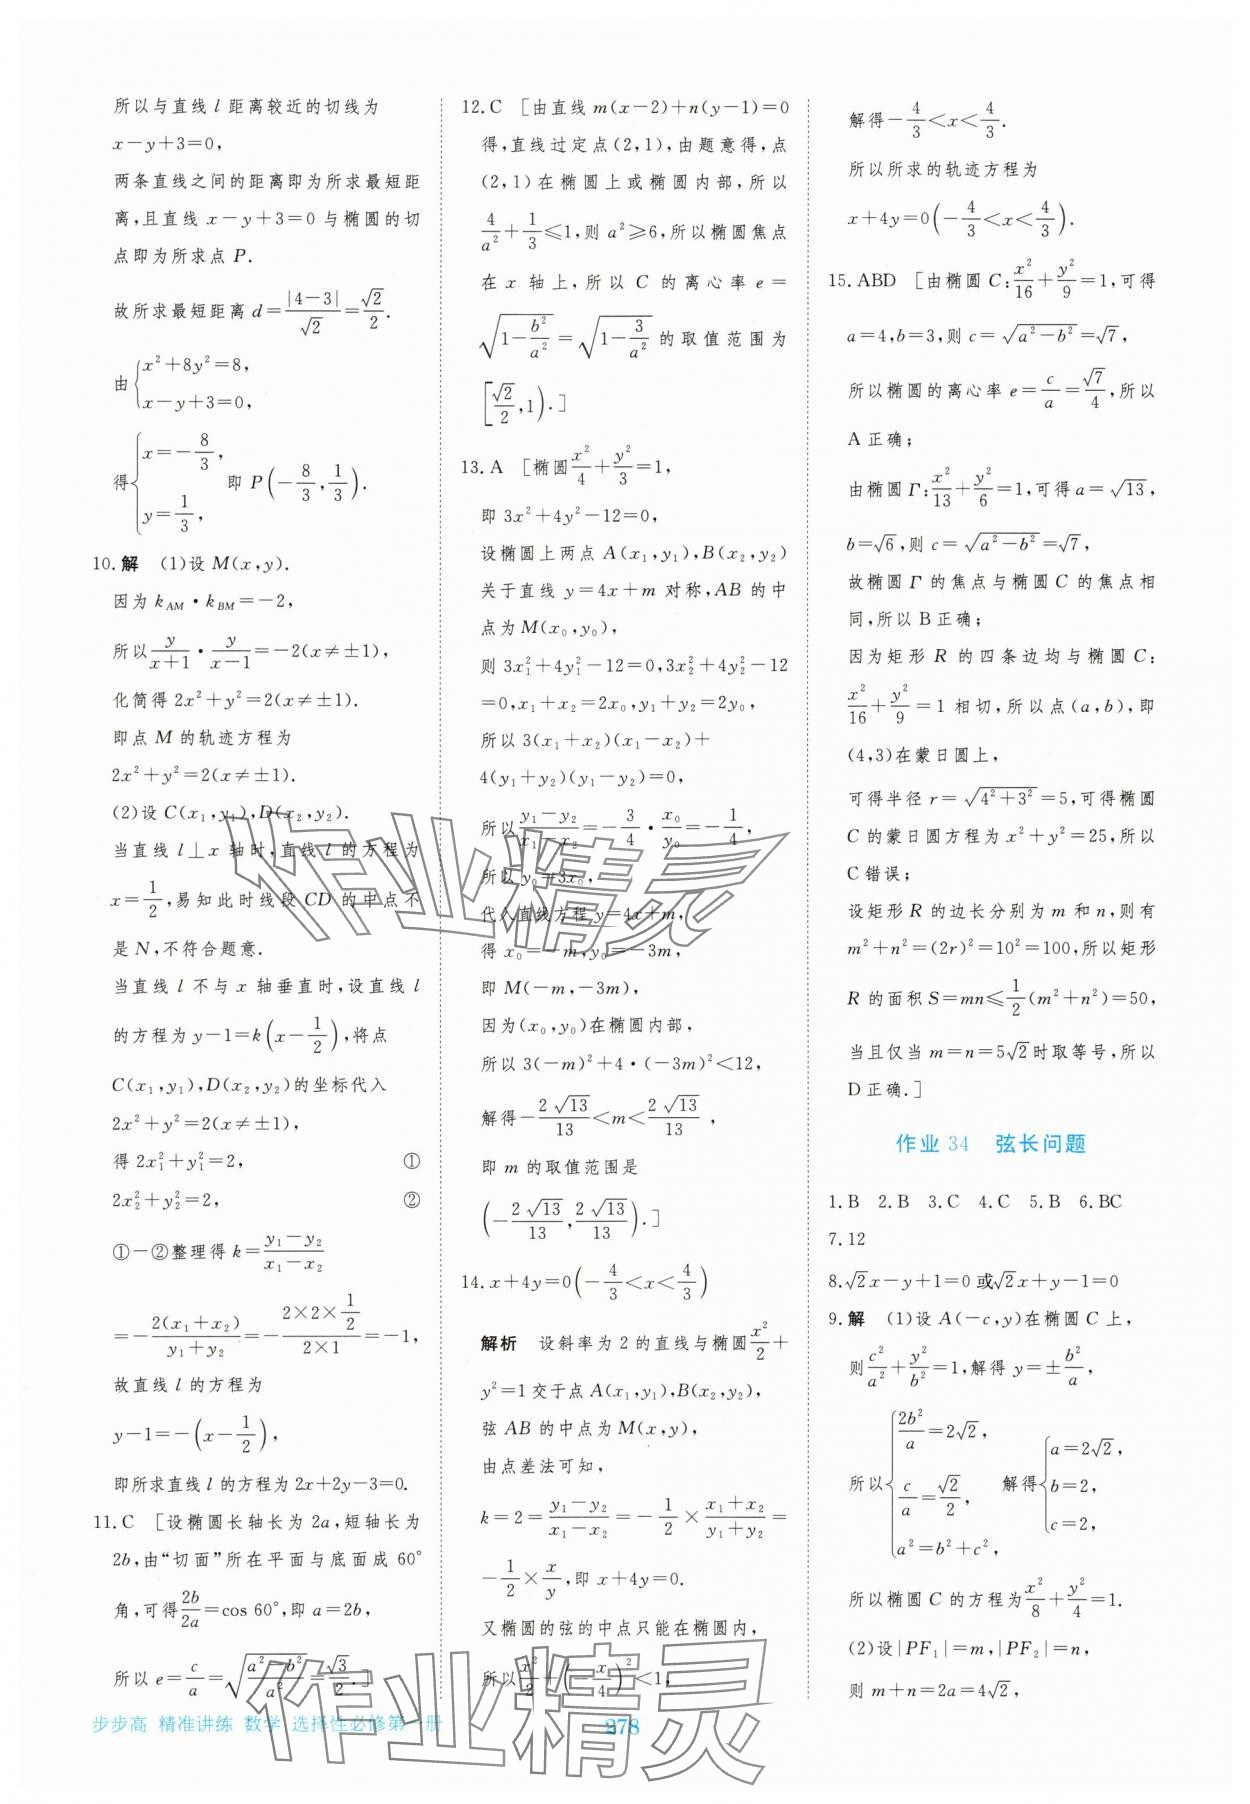 所以与直线 l 距离较近的切线为
x－y＋3＝0，
两条直线之间的距离即为所求最短距
离，且直线 x－y＋3＝0 与椭圆的切
点即为所求点 P.
故所求最短距离 d＝|4－3|/√2＝√2/2.
由{x²＋8y²＝8，
x－y＋3＝0，
得{x＝－8/3，
y＝1/3， 即 P(－8/3，1/3).
10.解 (1)设 M(x，y).
因为 k_AM·k_BM＝－2，
所以 y/(x＋1)·y/(x－1)＝－2(x≠±1)，
化简得 2x²＋y²＝2(x≠±1).
即点 M 的轨迹方程为
2x²＋y²＝2(x≠±1).
(2)设 C(x₁，y₁)，D(x₂，y₂).
当直线 l⊥x 轴时，直线 l 的方程为
x＝1/2，易知此时线段 CD 的中点不
是 N，不符合题意.
当直线 l 不与 x 轴垂直时，设直线 l
的方程为 y－1＝k(x－1/2)，将点
C(x₁，y₁)，D(x₂，y₂)的坐标代入
2x²＋y²＝2(x≠±1)，
得 2x₁²＋y₁²＝2， ①
2x₂²＋y₂²＝2， ②
①－②整理得 k＝(y₁－y₂)/(x₁－x₂)
＝－2(x₁＋x₂)/(y₁＋y₂)＝－(2×2×1/2)/(2×1)＝－1，
故直线 l 的方程为
y－1＝－(x－1/2)，
即所求直线 l 的方程为 2x＋2y－3＝0.
11.C [设椭圆长轴长为 2a，短轴长为
2b，由“切面”所在平面与底面成 60°
角，可得 2b/2a＝cos 60°，即 a＝2b，
所以 e＝c/a＝√((a²－b²)/a²)＝√3/2.]
12.C [由直线 m(x－2)＋n(y－1)＝0
得，直线过定点(2，1)，由题意得，点
(2，1)在椭圆上或椭圆内部，所以
4/a²＋1/3≤1，则 a²≥6，所以椭圆焦点
在 x 轴上，所以 C 的离心率 e＝
√(1－b²/a²)＝√(1－3/a²) 的取值范围为
[√2/2，1).]
13.A [椭圆 x²/4＋y²/3＝1，
即 3x²＋4y²－12＝0，
设椭圆上两点 A(x₁，y₁)，B(x₂，y₂)
关于直线 y＝4x＋m 对称，AB 的中
点为 M(x₀，y₀)，
则 3x₁²＋4y₁²－12＝0，3x₂²＋4y₂²－12
＝0，x₁＋x₂＝2x₀，y₁＋y₂＝2y₀，
所以 3(x₁＋x₂)(x₁－x₂)＋
4(y₁＋y₂)(y₁－y₂)＝0，
所以 (y₁－y₂)/(x₁－x₂)＝－3/4·x₀/y₀＝－1/4，
所以 y₀＝3x₀，
代入直线方程 y＝4x＋m，
得 x₀＝－m，y₀＝－3m，
即 M(－m，－3m)，
因为(x₀，y₀)在椭圆内部，
所以 3(－m)²＋4·(－3m)²＜12，
解得－2√13/13＜m＜2√13/13，
即 m 的取值范围是
(－2√13/13，2√13/13).]
14.x＋4y＝0(－4/3＜x＜4/3)
解析 设斜率为 2 的直线与椭圆 x²/2＋
y²＝1 交于点 A(x₁，y₁)，B(x₂，y₂)，
弦 AB 的中点为 M(x，y)，
由点差法可知，
k＝2＝(y₁－y₂)/(x₁－x₂)＝－1/2×(x₁＋x₂)/(y₁＋y₂)＝
－1/2×x/y，即 x＋4y＝0.
又椭圆的弦的中点只能在椭圆内，
所以 x²/2＋(－x/4)²＜1，
解得－4/3＜x＜4/3.
所以所求的轨迹方程为
x＋4y＝0(－4/3＜x＜4/3).
15.ABD [由椭圆 C：x²/16＋y²/9＝1，可得
a＝4，b＝3，则 c＝√(a²－b²)＝√7，
所以椭圆的离心率 e＝c/a＝√7/4，所以
A 正确；
由椭圆 Γ：x²/13＋y²/6＝1，可得 a＝√13，
b＝√6，则 c＝√(a²－b²)＝√7，
故椭圆 Γ 的焦点与椭圆 C 的焦点相
同，所以 B 正确；
因为矩形 R 的四条边均与椭圆 C：
x²/16＋y²/9＝1 相切，所以点(a，b)，即
(4，3)在蒙日圆上，
可得半径 r＝√(4²＋3²)＝5，可得椭圆
C 的蒙日圆方程为 x²＋y²＝25，所以
C 错误；
设矩形 R 的边长分别为 m 和 n，则有
m²＋n²＝(2r)²＝10²＝100，所以矩形
R 的面积 S＝mn≤1/2(m²＋n²)＝50，
当且仅当 m＝n＝5√2时取等号，所以
D 正确.]
作业 34 弦长问题
1.B 2.B 3.C 4.C 5.B 6.BC
7.12
8.√2x－y＋1＝0 或√2x＋y－1＝0
9.解 (1)设 A(－c，y)在椭圆 C 上，
则 c²/a²＋y²/b²＝1，解得 y＝±b²/a，
所以{2b²/a＝2√2，
c/a＝√2/2，
a²＝b²＋c²， 解得{a＝2√2，
b＝2，
c＝2，
所以椭圆 C 的方程为 x²/8＋y²/4＝1.
(2)设|PF₁|＝m，|PF₂|＝n，
则 m＋n＝2a＝4√2，
步步高 精准讲练 数学 选择性必修第一册
278
作业精灵
作业精灵